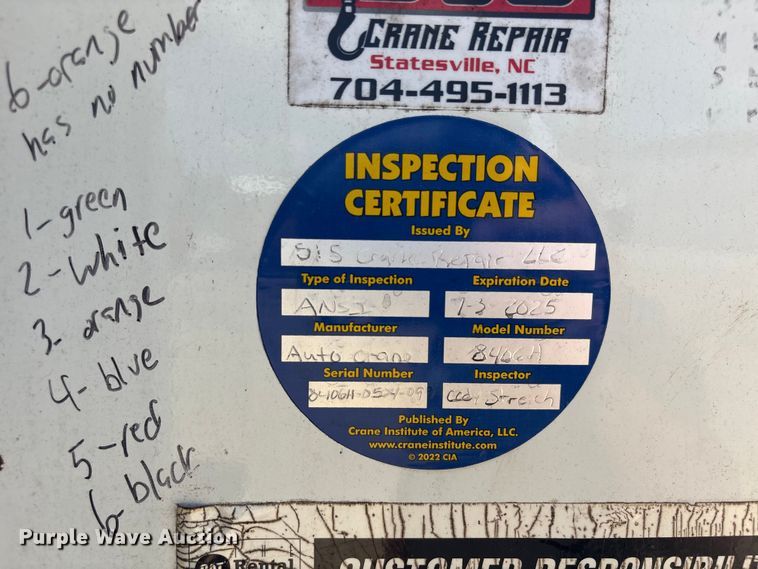 CRANE REPAIR
Statesville, NC
704-495-1113
6-orange
has no number
1-green
2-white
3-orange
4-blue
5-red
6-black
INSPECTION
CERTIFICATE
Issued By
Crane Repair LLC
Type of Inspection Expiration Date
ANSI 2025
Manufacturer Model Number
Auto Crane 8406H
Serial Number Inspector
Published By
Crane Institute of America, LLC.
www.craneinstitute.com
© 2022 CIA
Purple Wave Auction
Rental
CUSTOMER RESPONSIBILIT